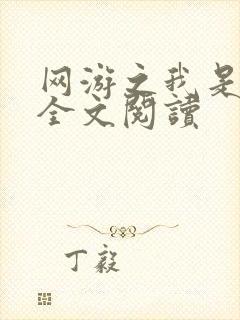 网游之我是
全文閱讀
丁毅